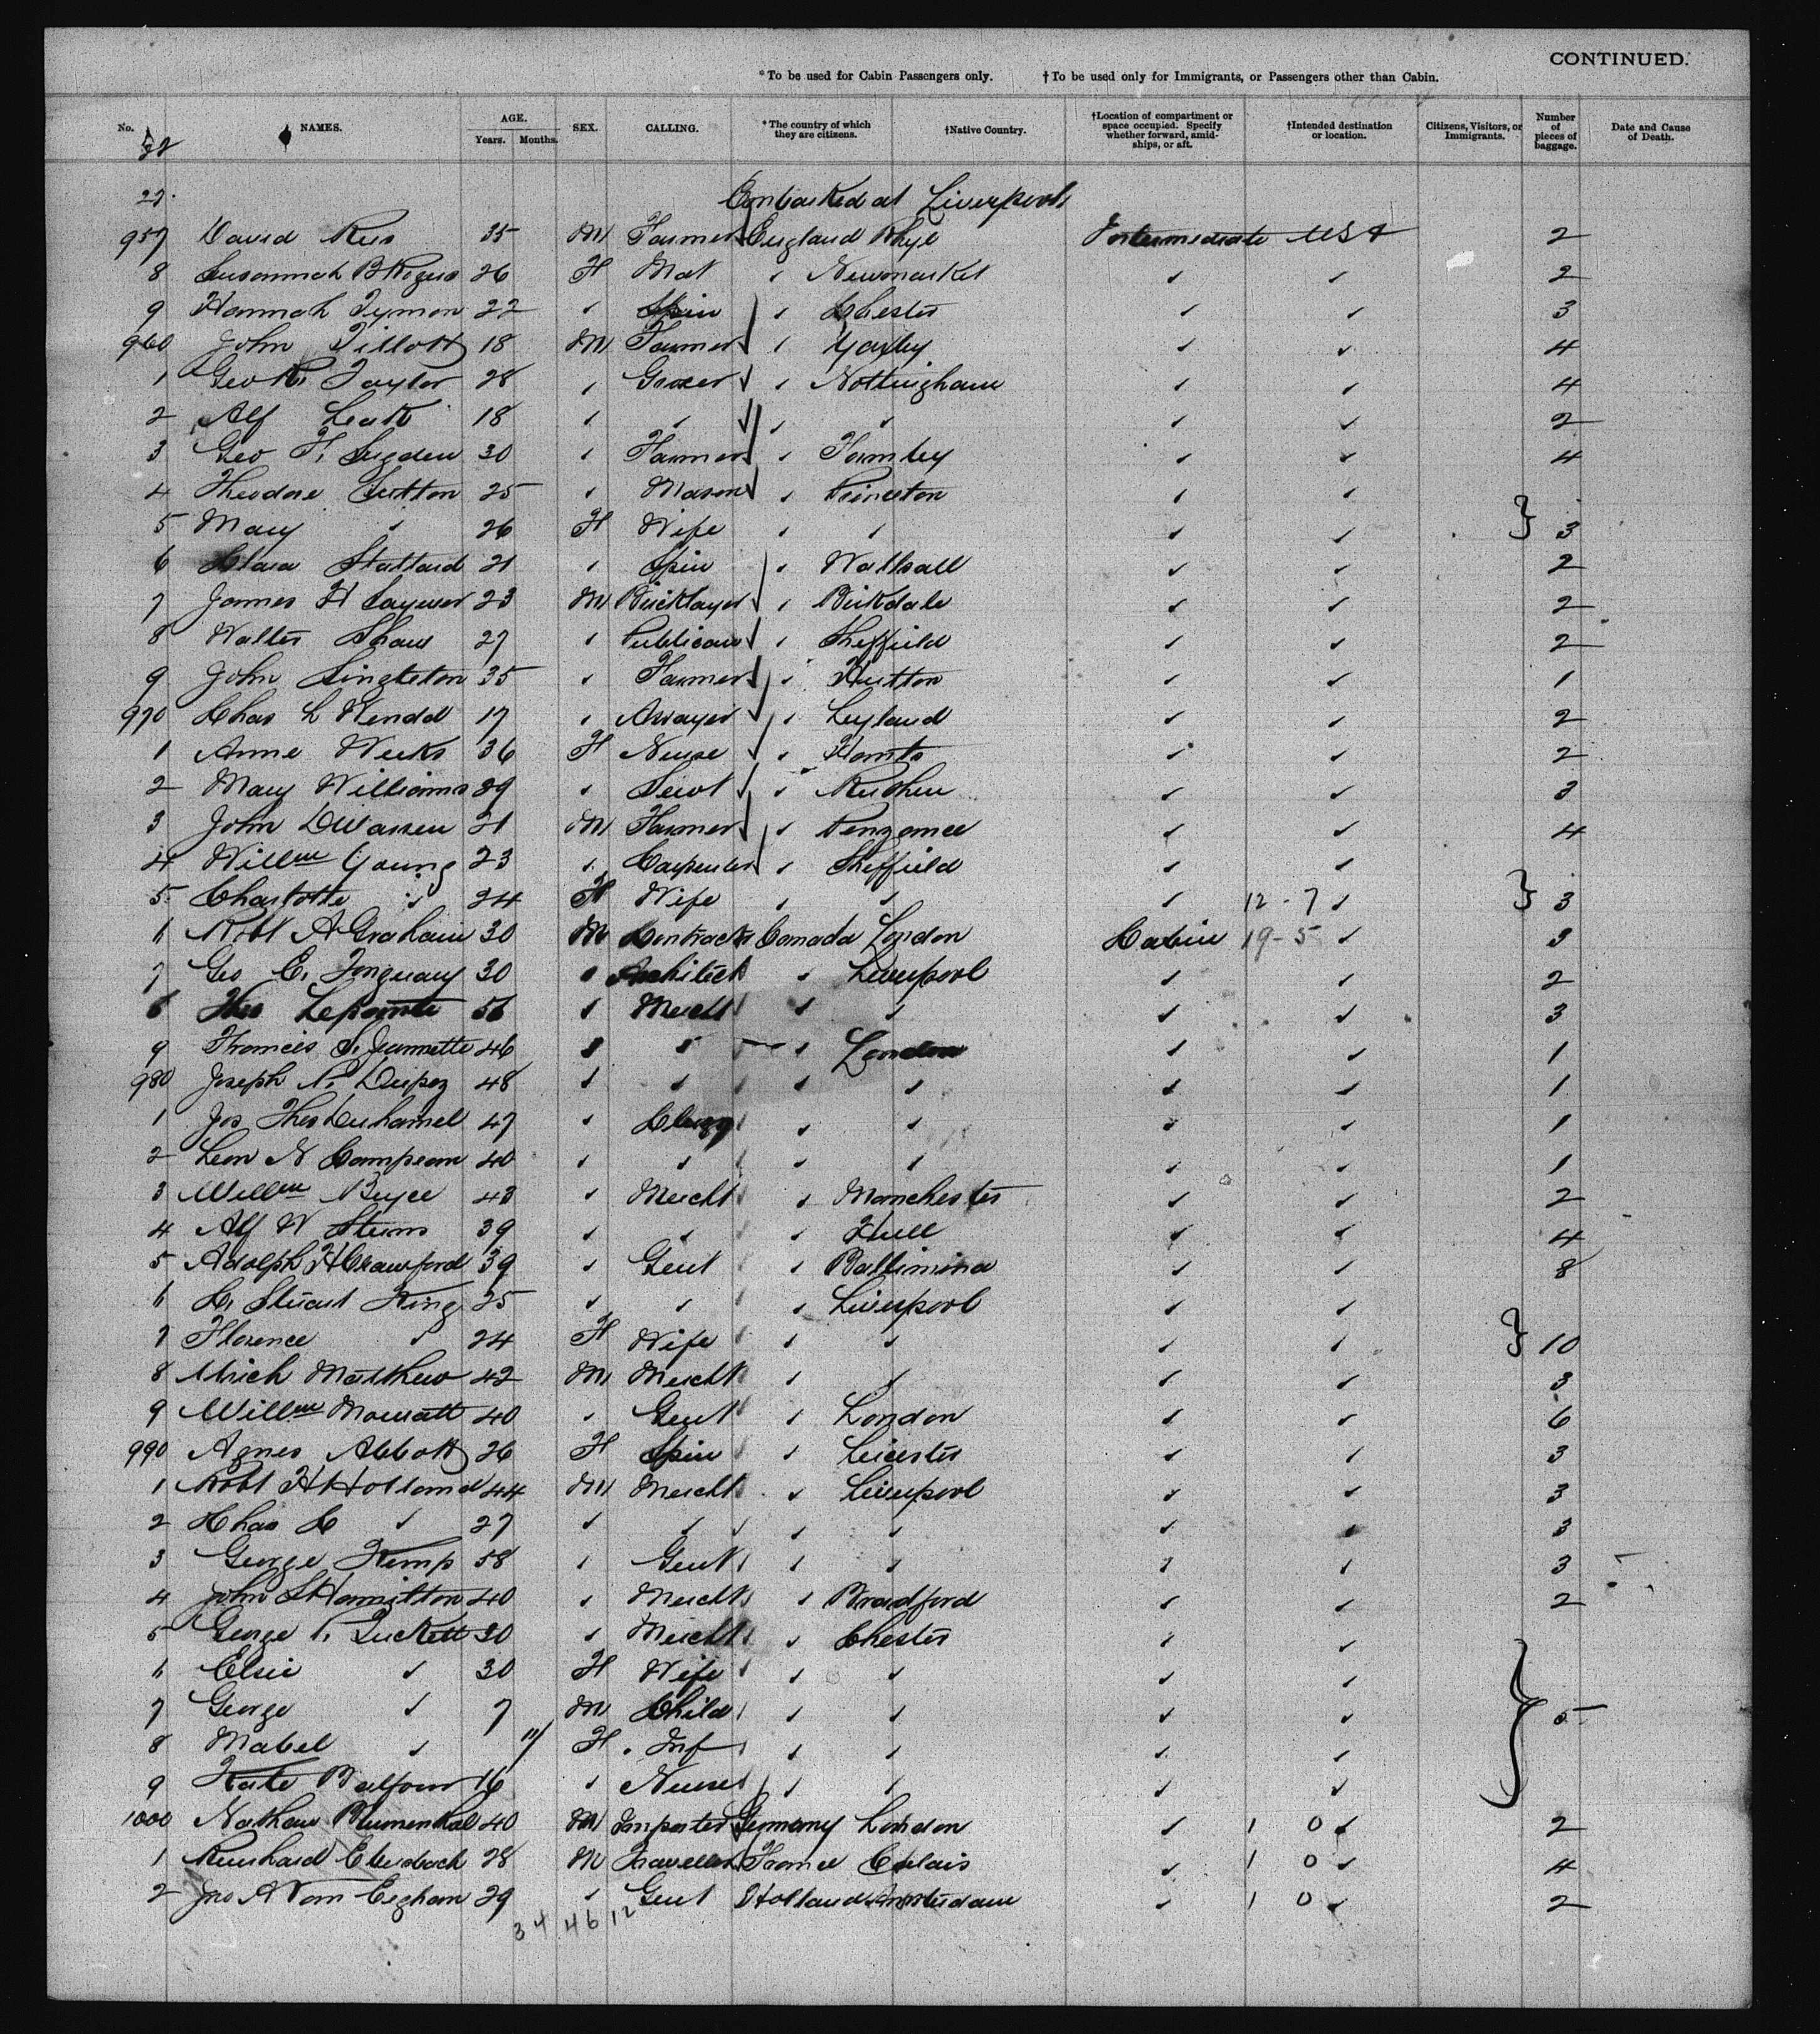 CONTINUED.
*To be used for Cabin Passengers only. †To be used only for Immigrants, or Passengers other than Cabin.
No. NAMES. AGE. Years. Months. SEX. CALLING. *The country of which they are citizens. †Native Country. †Location of compartment or space occupied. Specify whether forward, amidships, or aft. †Intended destination or location. Citizens, Visitors, or Immigrants. Number of pieces of baggage. Date and Cause of Death.
22
Embarked at Liverpool
957 David Rees 35 M Farmer England Rhyl Intermediate USA 2
8 Susannah 26 F Mat ✓ Newmarket ✓ ✓ 2
9 Hannah Tymon 22 ✓ Spin ✓ Chester ✓ ✓ 3
960 John Tillott 18 M Farmer ✓ Yaxley ✓ ✓ 4
1 Geo Taylor 28 ✓ Grocer ✓ Nottingham ✓ ✓ 4
2 Alf Leak 18 ✓ ✓ ✓ ✓ ✓ ✓ 2
3 Geo F. Sugden 30 ✓ Farmer ✓ Formby ✓ ✓ 4
4 Theodore Sutton 25 ✓ Mason ✓ Princeton ✓ ✓
5 Mary ✓ 26 F Wife ✓ ✓ ✓ ✓ } 3
6 Clara Stallard 21 ✓ Spin ✓ Walsall ✓ ✓ 2
7 James H 23 M Bricklayer ✓ Birkdale ✓ ✓ 2
8 Walter Shaw 27 ✓ Publican ✓ Sheffield ✓ ✓ 2
9 John Singleton 35 ✓ Farmer ✓ Hutton ✓ ✓ 1
970 Chas L Kendal 17 ✓ Assayer ✓ Leyland ✓ ✓ 2
1 Anne Weeks 36 F Nurse ✓ Hants ✓ ✓ 2
2 Mary Williams 29 ✓ Servt ✓ Ruthin ✓ ✓ 3
3 John 21 M Farmer ✓ Penzance ✓ ✓ 4
4 Willm Young 23 ✓ Carpenter ✓ Sheffield ✓ ✓
5 Charlotte ✓ 24 F Wife ✓ ✓ ✓ 12-7 ✓ } 3
6 Robt A Graham 30 M Contractr Canada London Cabin 19-5 ✓ 3
7 Geo E. Tanguay 30 ✓ Architect ✓ Liverpool ✓ ✓ 2
8 Thos Lepointe 56 ✓ Mercht ✓ ✓ ✓ ✓ 3
9 Francis S. Jeannette 46 ✓ ✓ ✓ London ✓ ✓ 1
980 Joseph N. Dupoz 48 ✓ ✓ ✓ ✓ ✓ ✓ 1
1 Jos Thos Duhamel 47 ✓ Clergy ✓ ✓ ✓ ✓ 1
2 Leon N Campeau 40 ✓ ✓ ✓ ✓ ✓ ✓ 1
3 Willm Bryce 43 ✓ Mercht ✓ Manchester ✓ ✓ 2
4 Alf W Stems 39 ✓ ✓ ✓ Hull ✓ ✓ 4
5 Adolph H Crawford 39 ✓ Gent ✓ Ballimina ✓ ✓ 8
6 C. Stuart King 25 ✓ ✓ ✓ Liverpool ✓ ✓
7 Florence ✓ 24 F Wife ✓ ✓ ✓ ✓ } 10
8 Ulrich Matthew 42 M Mercht ✓ ✓ ✓ ✓ 3
9 Willm Mowatt 40 ✓ Gent ✓ London ✓ ✓ 6
990 Agnes Abbott 26 F Spin ✓ Leicester ✓ ✓ 3
1 Robt H Holland 44 M Mercht ✓ Liverpool ✓ ✓ 3
2 Chas C ✓ 27 ✓ ✓ ✓ ✓ ✓ ✓ 3
3 George Kemp 58 ✓ Gent ✓ ✓ ✓ ✓ 3
4 John S Hamilton 40 ✓ Mercht ✓ Bradford ✓ ✓ 2
5 George P. Tuckett 30 ✓ Mercht ✓ Chester ✓ ✓
6 Elsie ✓ 30 F Wife ✓ ✓ ✓ ✓
7 George ✓ 7 M Child ✓ ✓ ✓ ✓ } 5
8 Mabel ✓ 11/ F Inf ✓ ✓ ✓ ✓
9 Kate Balfour 16 ✓ Nurse ✓ ✓ ✓ ✓
1000 Nathan Blumenthal 40 M Importer Germany London ✓ 1 0 ✓ 2
1 Reinhard 28 M Traveller France Calais ✓ 1 0 ✓ 4
2 Jno A Van Eeghan 29 ✓ Gent Holland Amsterdam ✓ 1 0 ✓ 2
34 46 12